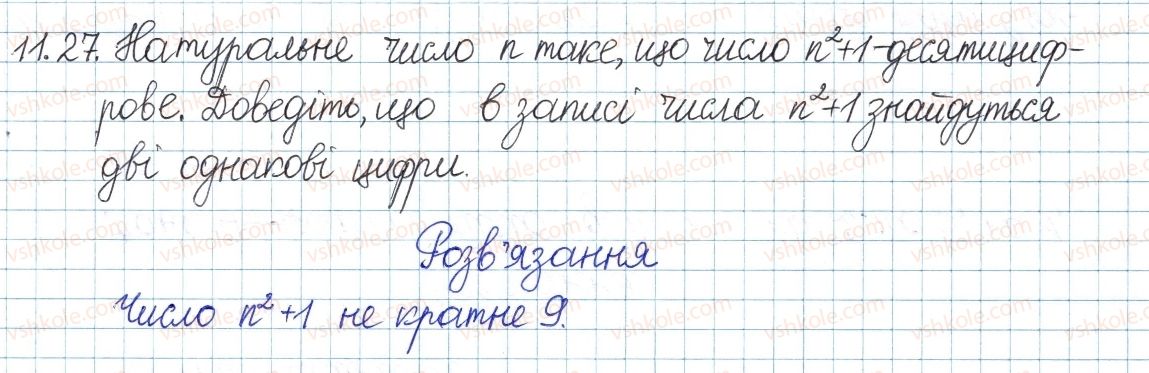 11.27. Натуральне число n таке, що число n²+1-десятициф-
рове. Доведіть, що в записі числа n²+1 знайдуться
дві однакові цифри.
Розв'язання
Число n²+1 не кратне 9.